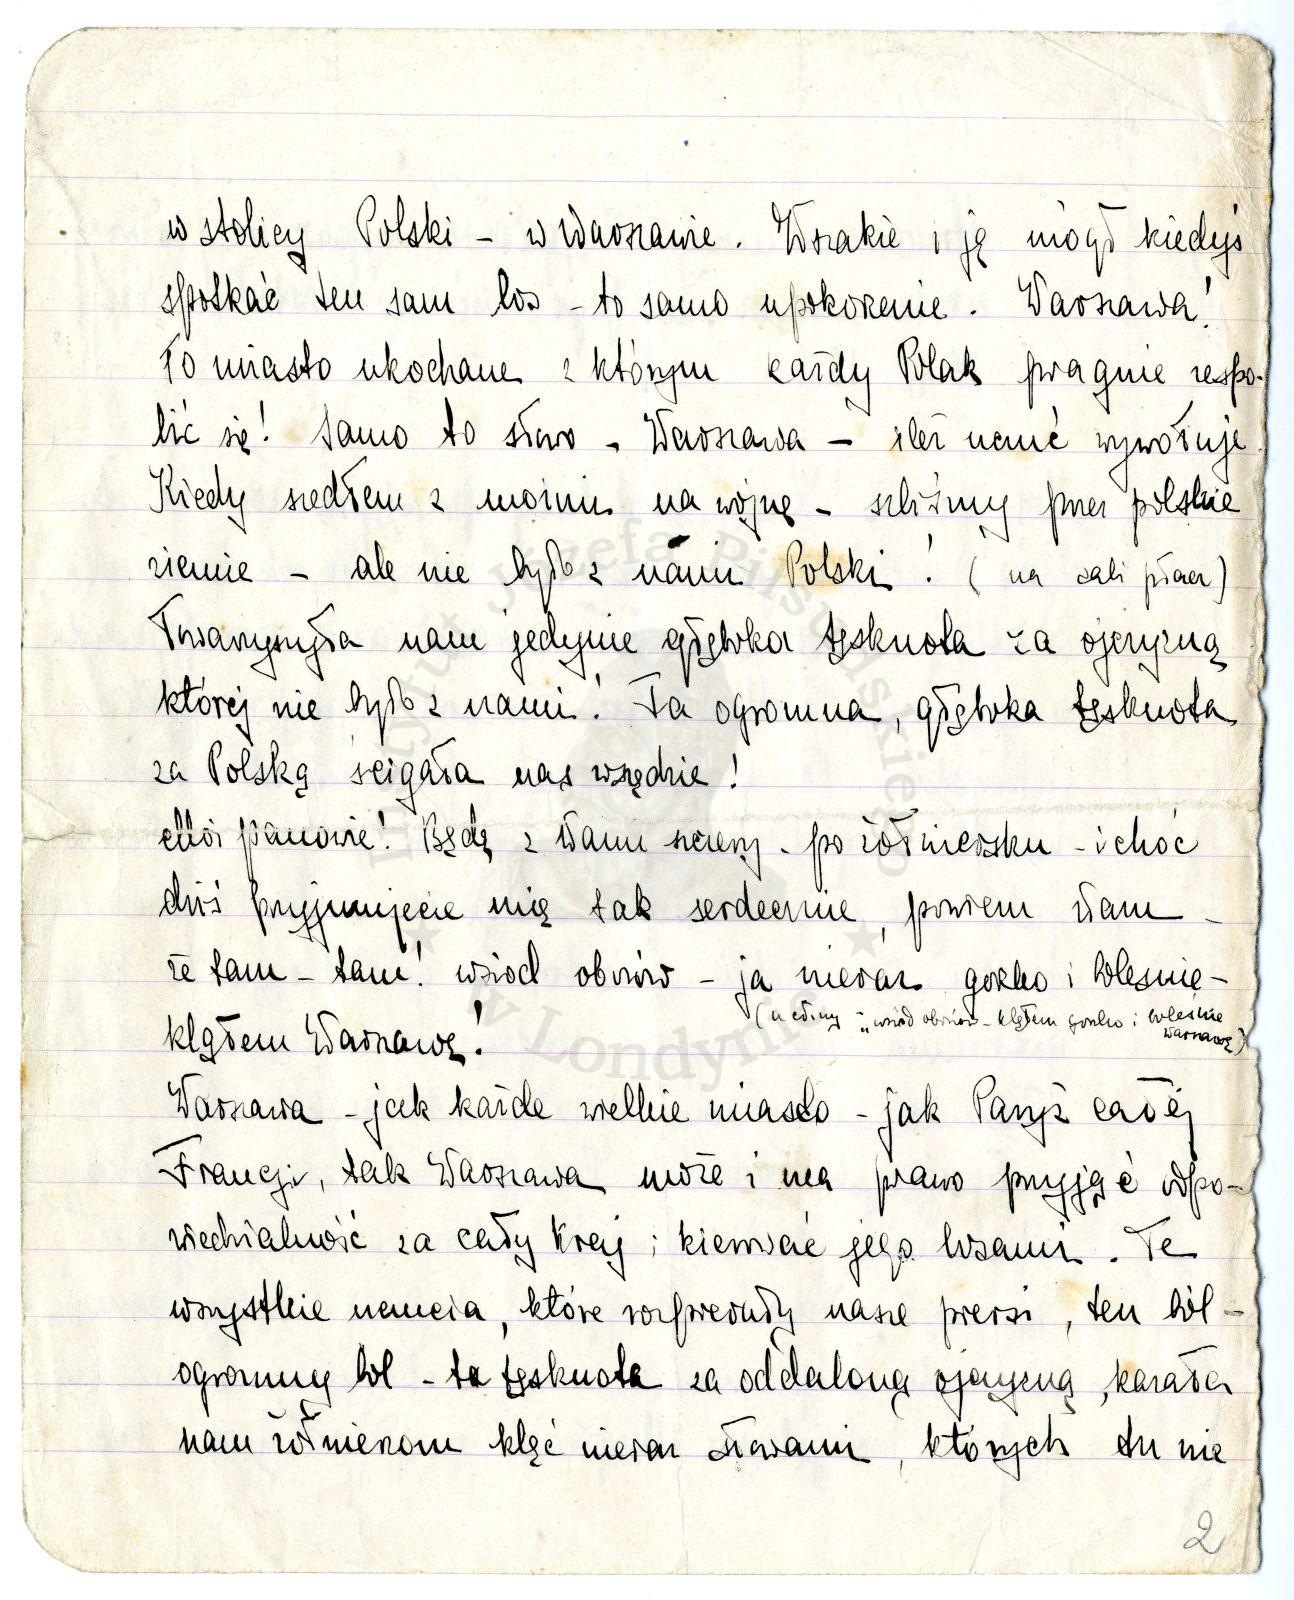 w stolicy Polski – w Warszawie. Wszakże i ją mógł kiedyś
spotkać ten sam los – to samo upokorzenie. Warszawa!
To miasto ukochane z którym każdy Polak pragnie zespo-
lić się! Samo to słowo – Warszawa – ileż uczuć wywołuje
Kiedy szedłem z moimi na wojnę – szliśmy przez polskie
ziemie – ale nie było z nami Polski! (na sali płacz)
Towarzyszyła nam jedynie głęboka tęsknota za ojczyzną
której nie było z nami! Ta ogromna, głęboka tęsknota
za Polską ścigała nas wszędzie!
Moi panowie! Będę z Wami szczery – po żołniersku – i choć
dziś przyjmujecie mię tak serdecznie, powiem Wam –
że tam – tam! wśród obozów – ja nieraz gorzko i boleśnie –
(uczciwy „wśród obozów – kląłem gorzko i boleśnie
Warszawę)
kląłem Warszawę!
Warszawa – jak każde wielkie miasto – jak Paryż całej
Francji, tak Warszawa może i ma prawo przyjąć odpo-
wiedzialność za cały kraj i kierować jego losami. Te
wszystkie uczucia, które rozpierały nasze piersi, ten ból –
ogromny ból – ta tęsknota za oddaloną ojczyzną, kazała
nam żołnierzom kląć nieraz słowami, których tu nie
2
Instytut Józefa Piłsudskiego
w Londynie